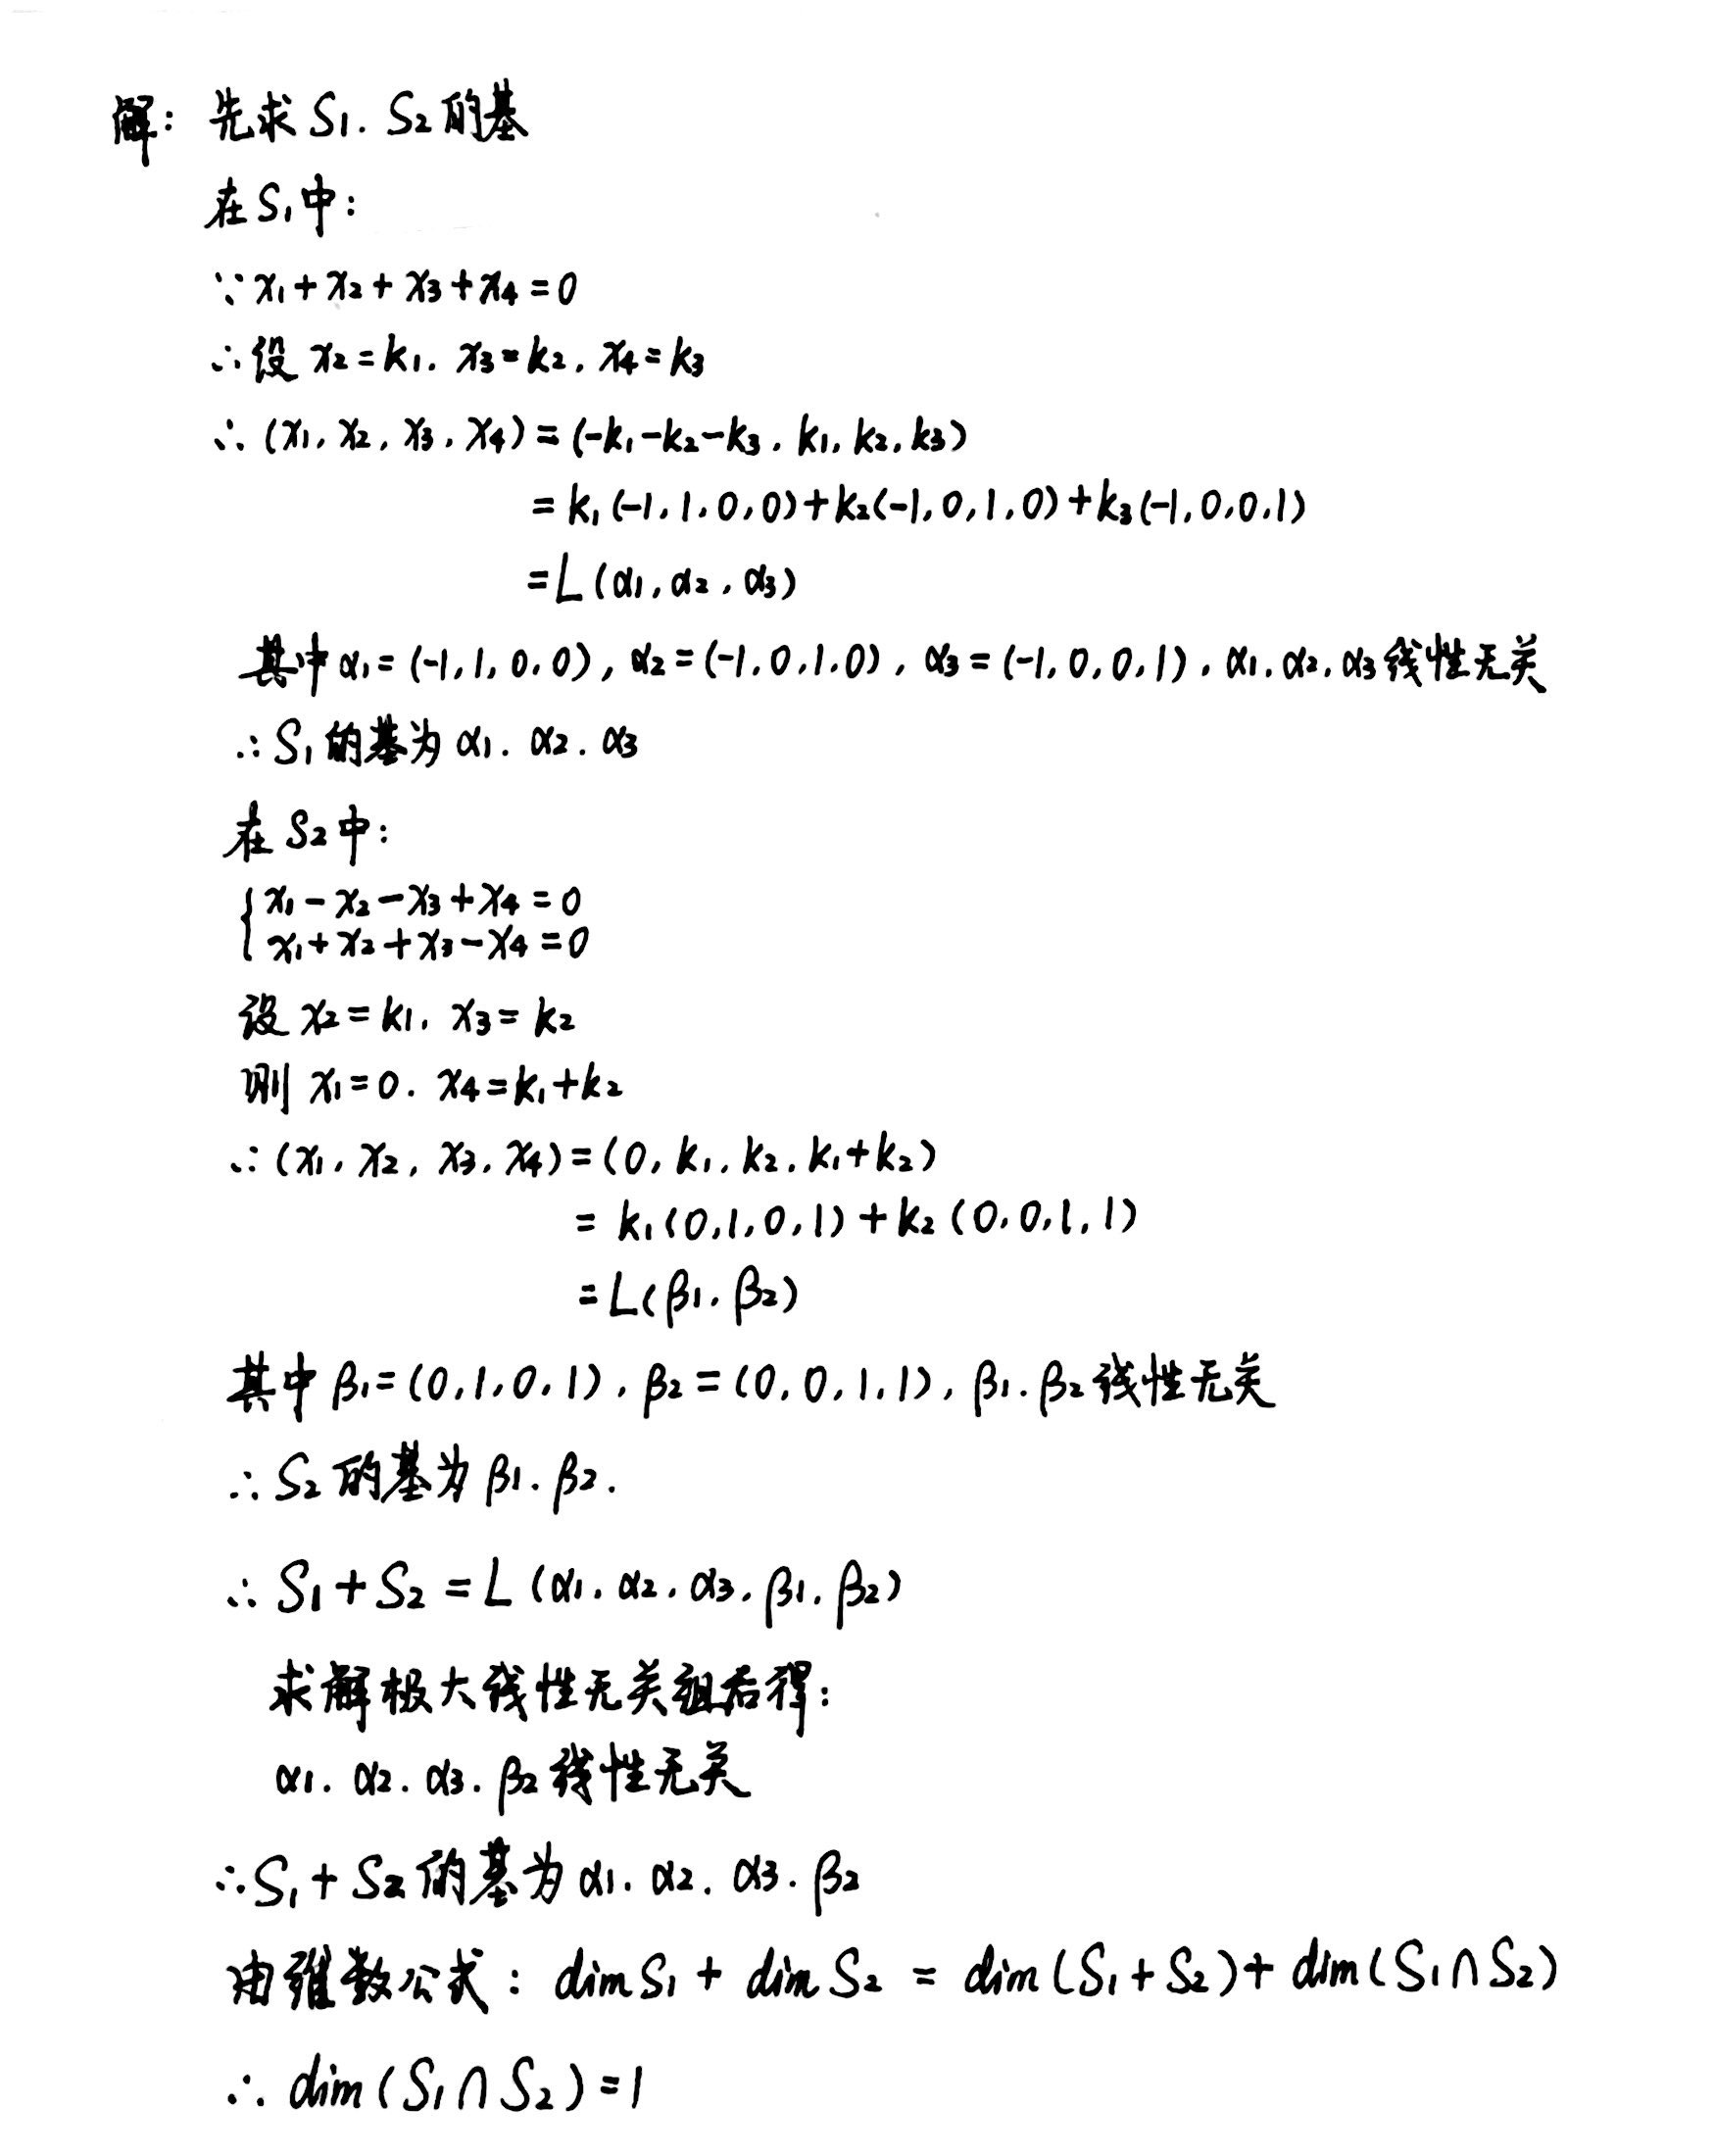 解: 先求 S₁. S₂ 的基
在 S₁ 中:
∵ x₁+x₂+x₃+x₄=0
∴ 设 x₂=k₁. x₃=k₂, x₄=k₃
∴ (x₁, x₂, x₃, x₄) = (-k₁-k₂-k₃, k₁, k₂, k₃)
= k₁(-1,1,0,0)+k₂(-1,0,1,0)+k₃(-1,0,0,1)
= L(α₁, α₂, α₃)
其中 α₁=(-1,1,0,0), α₂=(-1,0,1,0), α₃=(-1,0,0,1), α₁, α₂, α₃ 线性无关
∴ S₁ 的基为 α₁. α₂. α₃
在 S₂ 中:
{ x₁-x₂-x₃+x₄=0
x₁+x₂+x₃-x₄=0
设 x₂=k₁, x₃=k₂
则 x₁=0. x₄=k₁+k₂
∴ (x₁, x₂, x₃, x₄)=(0, k₁, k₂, k₁+k₂)
= k₁(0,1,0,1)+k₂(0,0,1,1)
= L(β₁, β₂)
其中 β₁=(0,1,0,1), β₂=(0,0,1,1), β₁. β₂ 线性无关
∴ S₂ 的基为 β₁. β₂.
∴ S₁+S₂ = L(α₁. α₂. α₃. β₁. β₂)
求解极大线性无关组后得:
α₁. α₂. α₃. β₂ 线性无关
∴ S₁+S₂ 的基为 α₁. α₂. α₃. β₂
由维数公式: dim S₁ + dim S₂ = dim(S₁+S₂)+dim(S₁∩S₂)
∴ dim(S₁∩S₂)=1